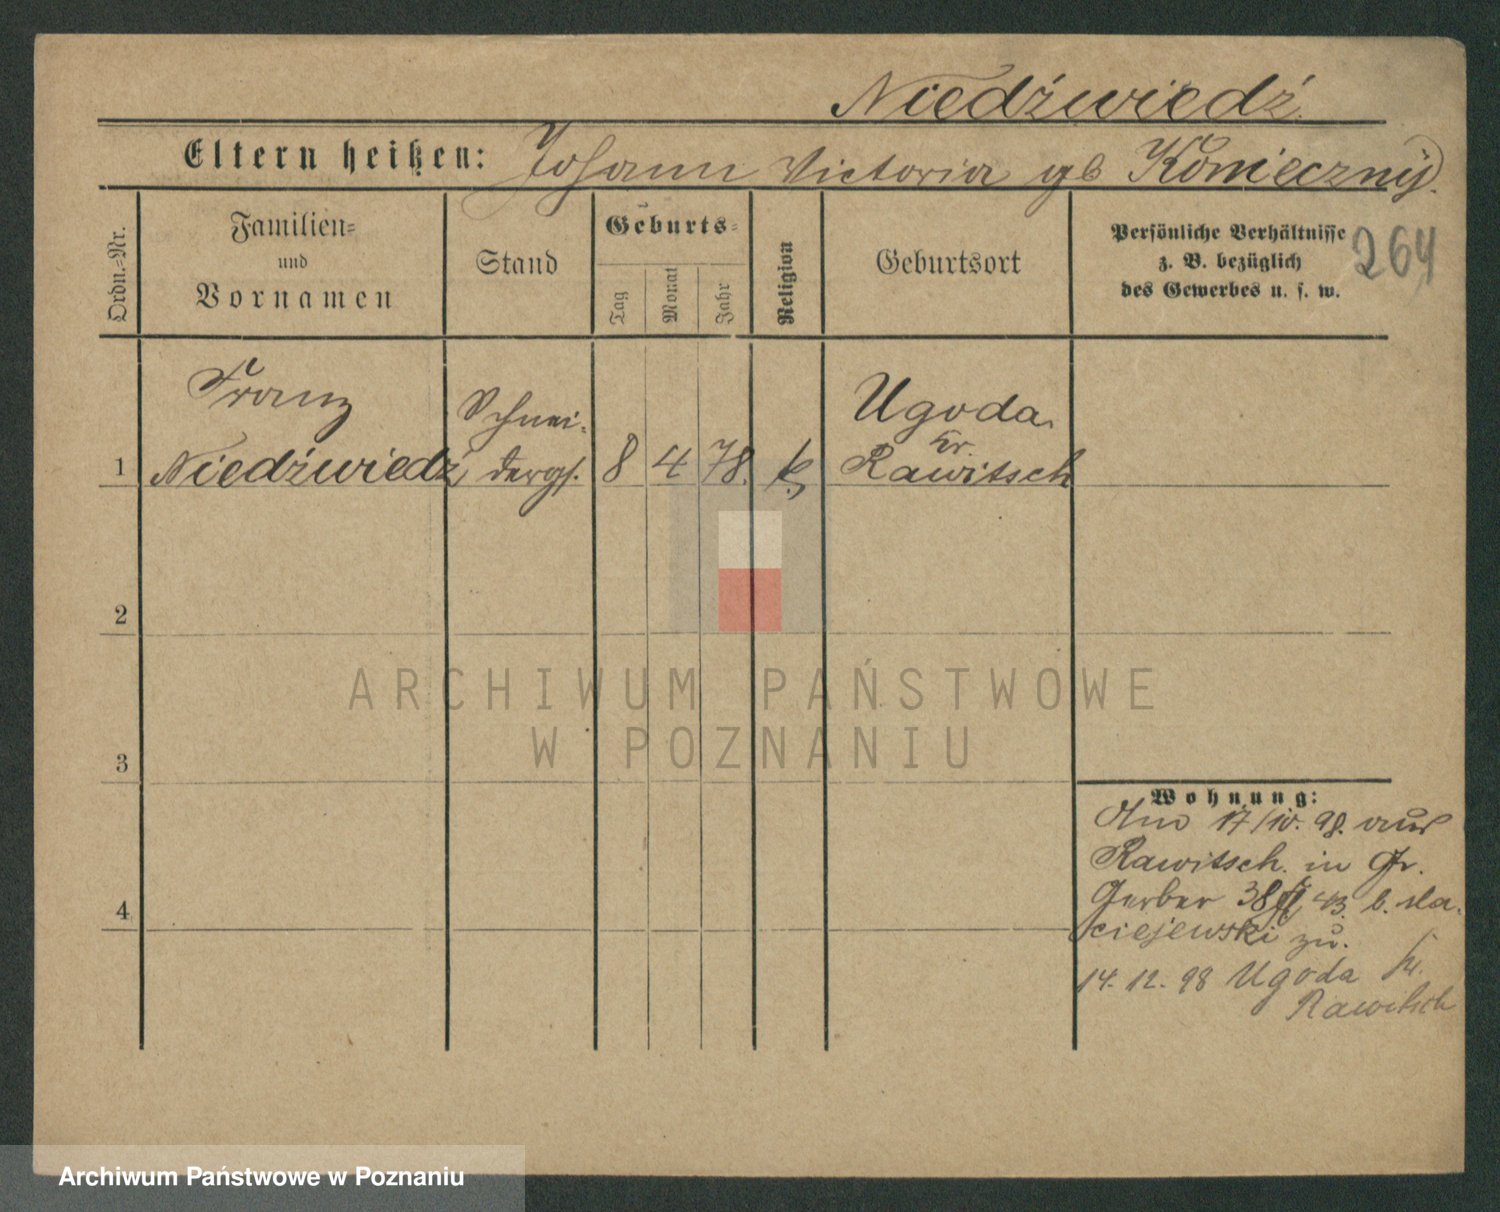 Niedźwiedź.
Eltern heißen: Johann Victoria gb Konieczny.
Ordn.=Nr.
Familien=
und
Vornamen
Stand
Geburts=
Tag
Monat
Jahr
Religion
Geburtsort
Persönliche Verhältnisse
z. B. bezüglich
des Gewerbes u. s. w.
264
1
Franz
Niedźwiedź
Schnei-
dergs.
8
4
78.
k.
Ugoda
Kr.
Rawitsch
2
3
4
ARCHIWUM PAŃSTWOWE
W POZNANIU
Wohnung:
17/10. 98. aus
Rawitsch in Gr.
Gerber 38 43. b. Ma-
ciejewski zu.
14. 12. 98 Ugoda Kr.
Rawitsch
Archiwum Państwowe w Poznaniu